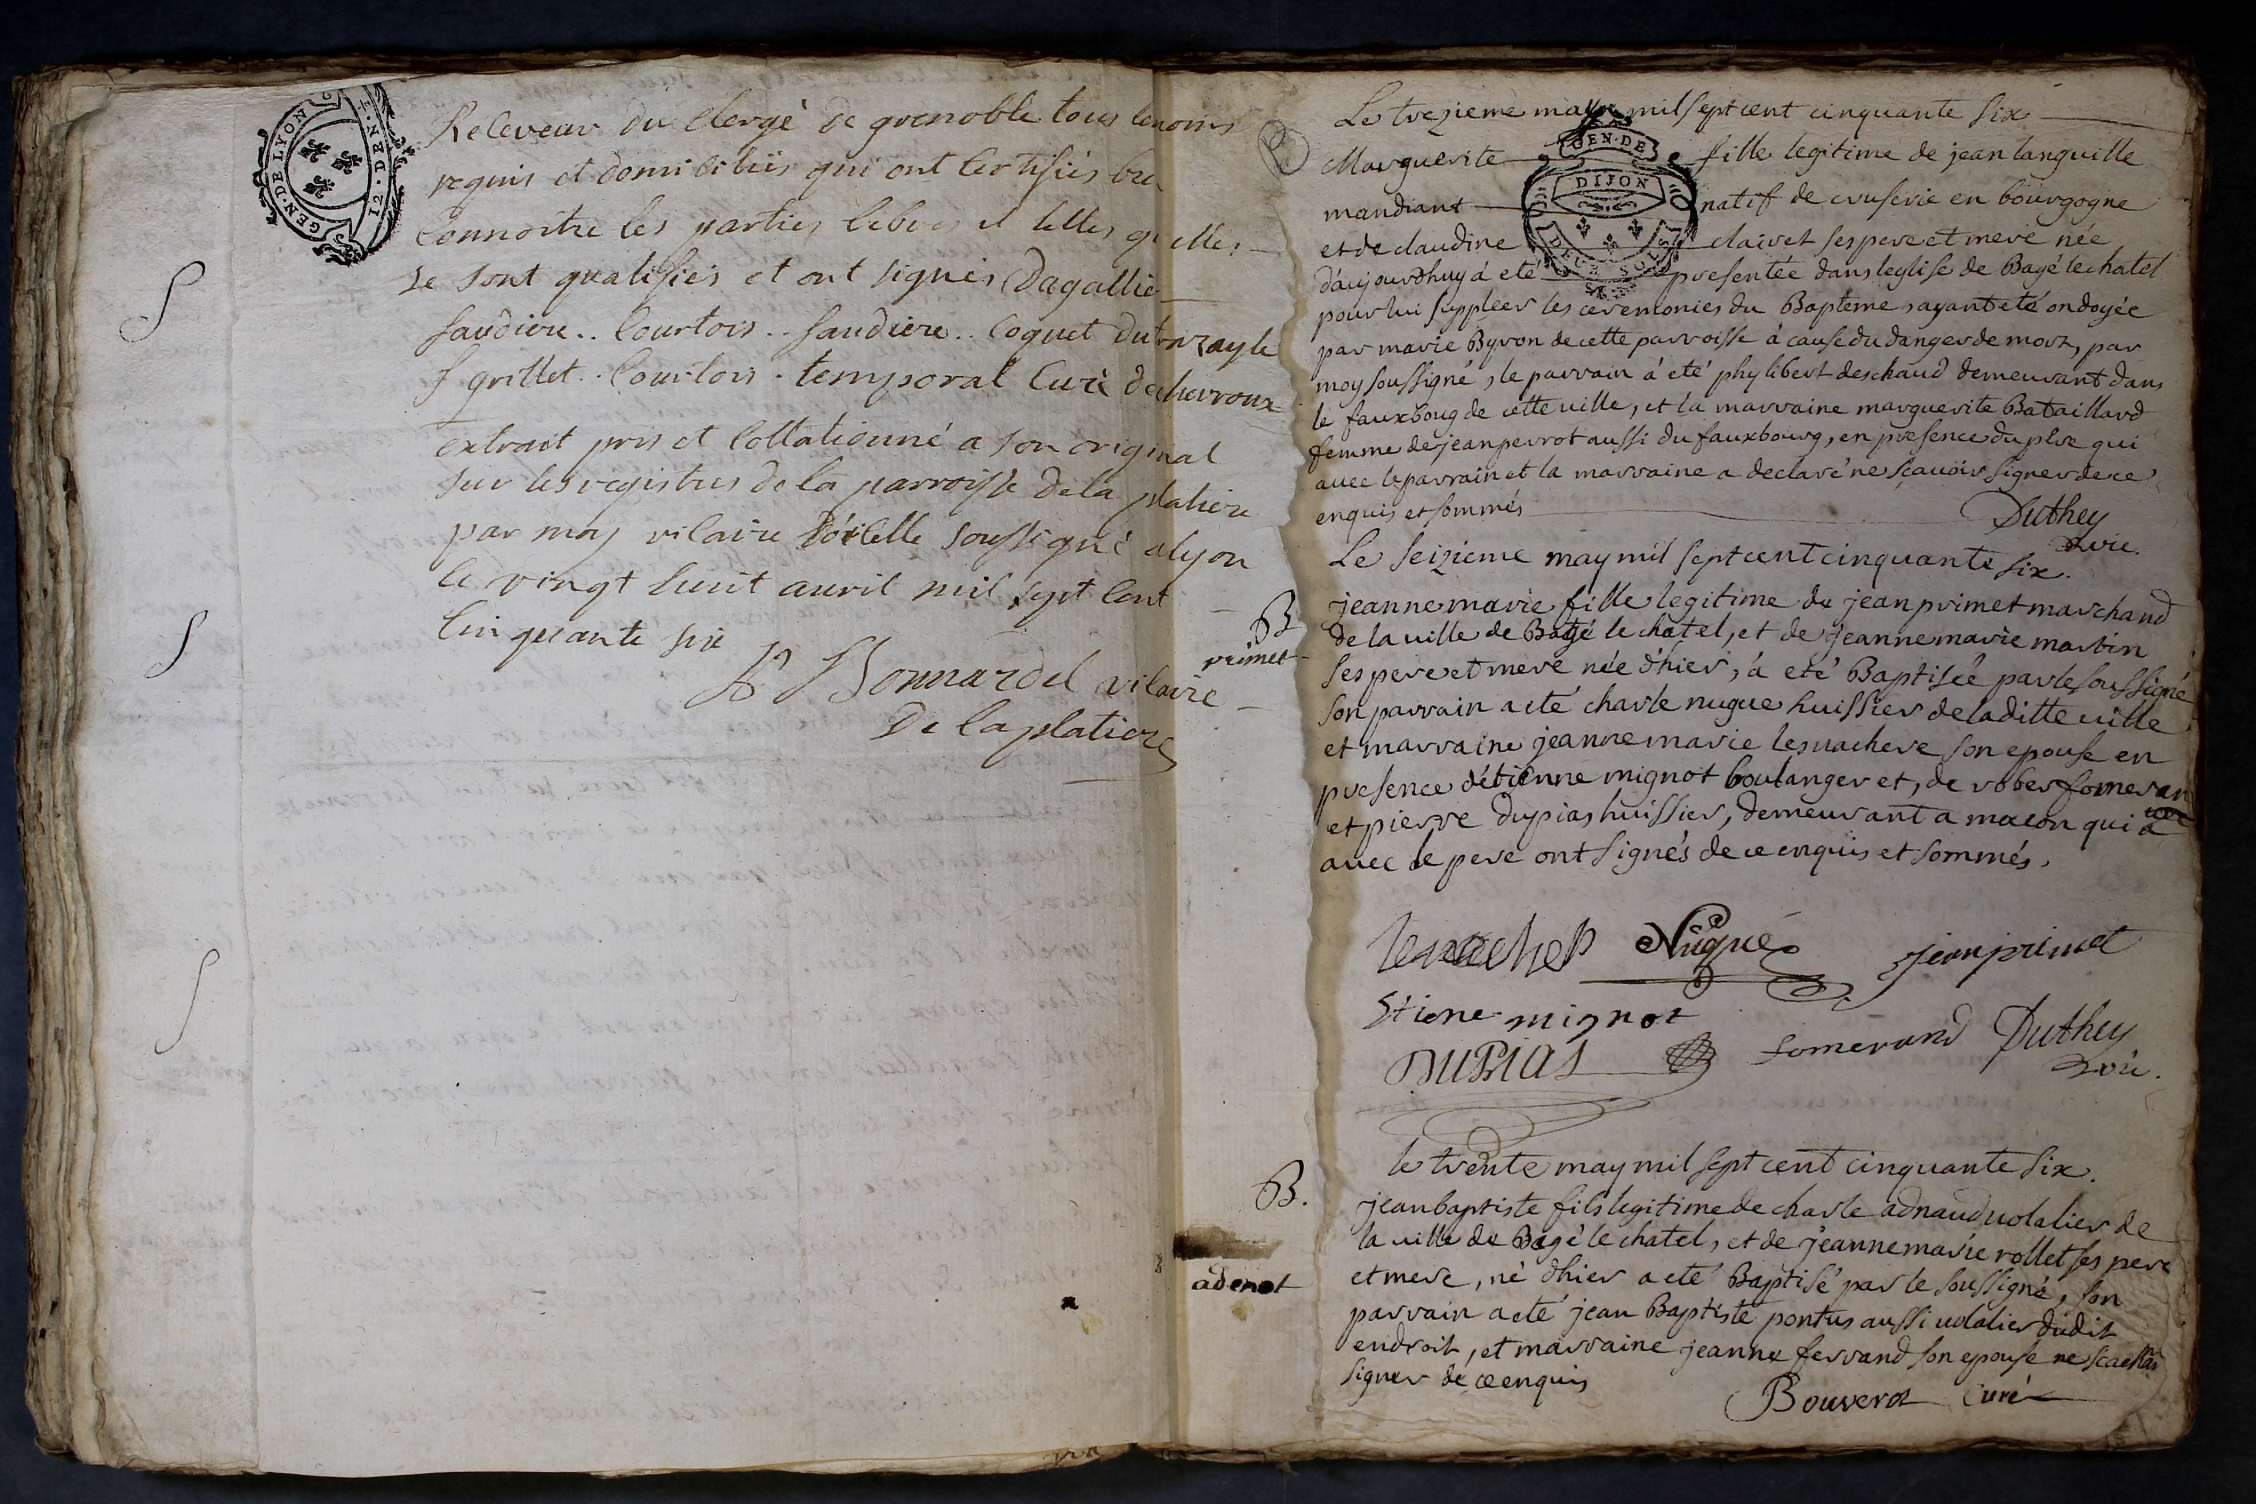 GEN · DE LYON
12 · DEN · T
Releveur du Clergé de grenoble tous temoins
requis et domiciliés qui ont Certifiés
Connoitre les parties libres et telles qu'elles
se sont qualifiés et ont signés Dagallie
Saudiere .. Courtois .. Saudiere .. Coquet
f grillet . Courtois . temporal Curé de chevroux
extrait pris et Collationné a son original
sur les registres de la parroisse de la platiere
par moy vicaire d'icelle soussigné a lyon
le vingt huit avril mil sept Cent
Cinquante six
Bonnardel vicaire
De la platiere
Le trezieme may mil sept cent cinquante six
GEN · DE
DIJON
DEUX SOLS
Marguerite fille legitime de jean languille
mandiant natif de cruserie en bourgogne
et de claudine clairet ses pere et mere née
d'aujourdhuy á eté presentée dans leglise de Bagé le chatel
pour lui suppleer les ceremonies du Bapteme ayant eté ondoyée
par marie Byron de cette parroisse á cause du danger de mort, par
moy soussigné, le parrain á eté phylibert deschaud demeurant dans
le fauxboug de cette ville, et la marraine marguerite Bataillard
femme de jean perrot aussi du fauxbourg, en presence du pere qui
avec le parrain et la marraine a declaré ne sçavoir signer de ce
enquis et sommés
Duthey
vic.
Le seizieme may mil sept cent cinquante six.
B
primet
jeanne marie fille legitime de jean primet marchand
de la ville de Bagé le chatel, et de jeanne marie martin
ses pere et mere née d'hier, á eté Baptisée par le soussigné
son parrain a eté charle nugue huissier de la ditte ville
et marraine jeanne marie lesnachere son epouse en
presence d'étienne mignot boulanger et, de rober
et pierre dupias huissier, demeurant a macon qui
avec le pere ont signés de ce enquis et sommés.
Nugue
jean primet
Etiene mignot
DUPIAS
somerand
Duthey
vic.
le trente may mil sept cent cinquante six.
B.
adenot
jean baptiste fils legitime de charle adnaud volalier de
la ville de Bagé le chatel, et de jeanne marie rollet ses pere
et mere, né d'hier a eté Baptisé par le soussigné, son
parrain a eté jean Baptiste pontus aussi volalier dudit
endroit, et marraine jeanne ferrand son epouse ne
signer de ce enquis
Bouverot Curé